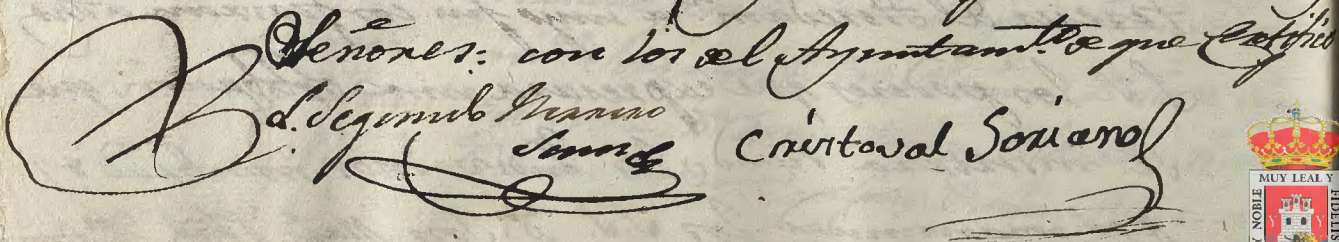 Señores: con los del Ayuntam.to de que Certifico
d. Segundo
Cristoval Soriano
MUY LEAL Y
Y NOBLE
FIDELIS
Y Y